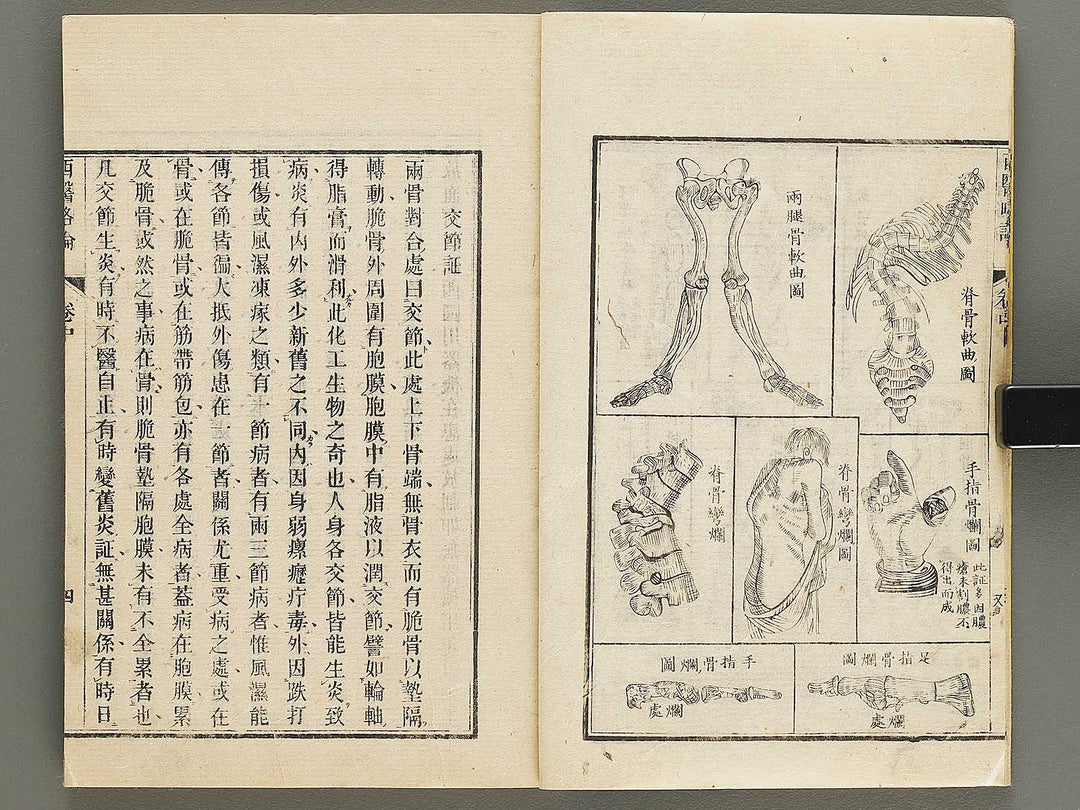 西醫略論
脊骨軟曲圖
兩腿骨軟曲圖
手指骨爛圖
此証多因膿
瘡未割膿不
得出而成
脊骨彎爛圖
脊骨彎爛
足指骨爛圖
爛處
手指骨爛圖
爛處
又
交節証
兩骨對合處曰交節此處上下骨端無骨衣而有脆骨以墊隔
轉動脆骨外周圍有胞膜胞膜中有脂液以潤交節譬如輪軸
得脂膏而滑利此化工生物之奇也人身各交節皆能生炎致
病炎有內外多少新舊之不同內因身弱瘰癧疔毒外因跌打
損傷或風濕凍瘃之類有一節病者有兩三節病者惟風濕能
傳各節皆徧大抵外傷患在一節者關係尤重受病之處或在
骨或在脆骨或在筋帶筋包亦有各處全病者蓋病在胞膜累
及脆骨或然之事病在骨則脆骨墊隔胞膜未有不全累者也
凡交節生炎有時不醫自止有時變舊炎証無甚關係有時日
西醫略論
卷中
四